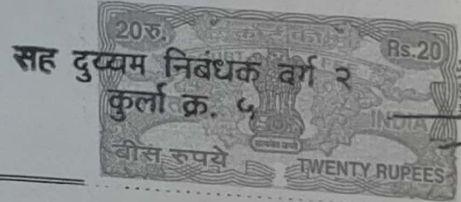 20रु. Rs.20
सह दुय्यम निबंधक वर्ग २
कुर्ला क्र. ५
INDIA
बीस रुपये TWENTY RUPEES